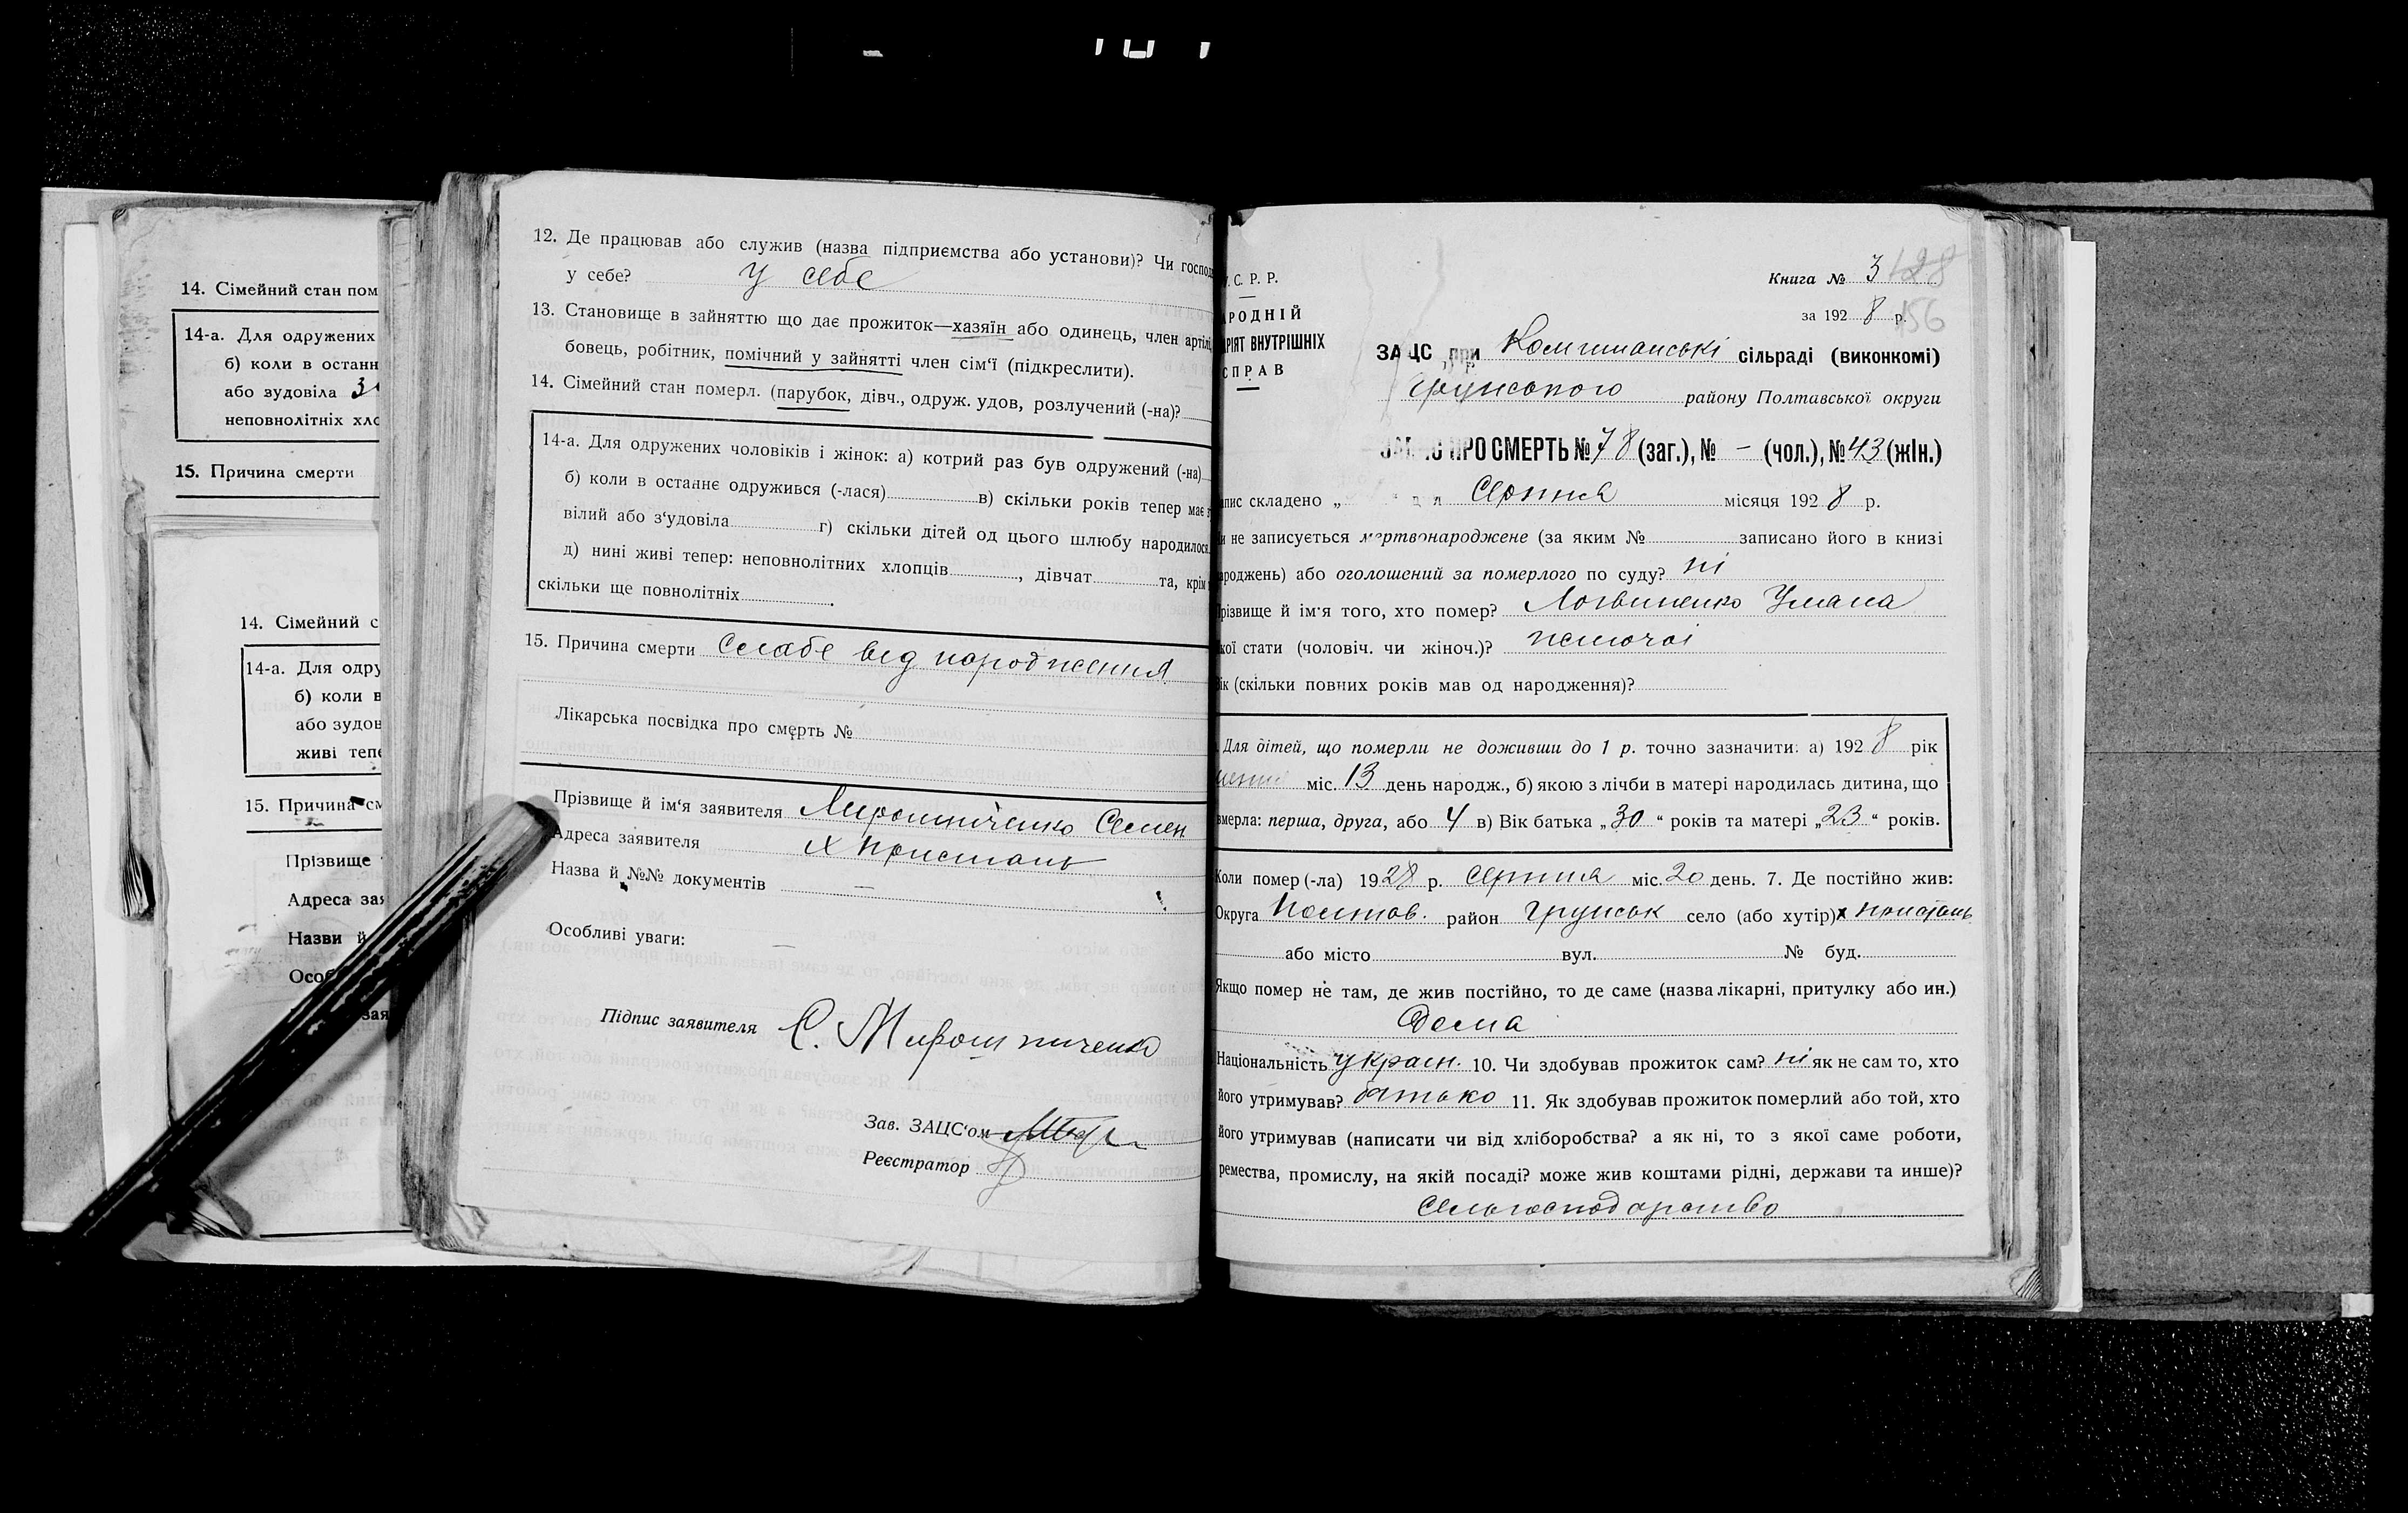 14. Сімейний стан пом
14-а. Для одружених
б) коли в останн
або зудовіла
неповнолітніх хло
15. Причина смерти
14. Сімейний с
14-а. Для одру
б) коли в
або зудов
живі тепе
15. Причина см
Прізвище
Адреса зая
Назви й
Особ
зая
12. Де працював або служив (назва підприємства або установи)? Чи господ
у себе? у себе
13. Становище в зайняттю що дає прожиток—хазяїн або одинець, член артілі,
бовець, робітник, помічний у зайнятті член сім'ї (підкреслити).
14. Сімейний стан померл. (парубок, дівч., одруж. удов, розлучений (-на)?
14-а. Для одружених чоловіків і жінок: а) котрий раз був одружений (-на)
б) коли в останнє одружився (-лася) в) скільки років тепер має з
вілий або з'удовіла г) скільки дітей од цього шлюбу народилося
д) нині живі тепер: неповнолітних хлопців, дівчат та, крім
скільки ще повнолітніх.
15. Причина смерти Слабе від народження
Лікарська посвідка про смерть №
Прізвище й ім'я заявителя Мирошніченко Семен
Адреса заявителя х Пристань
Назва й №№ документів —
Особливі уваги: —
Підпис заявителя С. Мирошниченко
Зав. ЗАЦС'ом
Реєстратор
У.С.Р.Р.
РОДНІЙ
РІЯТ ВНУТРІШНІХ
СПРАВ
Книга № 3 128
за 1928 р. 156
ЗАЦС при Комишанські сільраді (виконкомі)
Грунського району Полтавської округи
ЗАПИС ПРО СМЕРТЬ № 78 (заг.), № – (чол.), № 43 (жін.)
апис складено „ Серпня місяця 1928 р.
и не записується мертвонароджене (за яким № записано його в книзі
ароджень) або оголошений за померлого по суду? ні
Прізвище й ім'я того, хто помер? Логвиненко Уляна
кої стати (чоловіч. чи жіноч.)? жіночої
ік (скільки повних років мав од народження)?
Для дітей, що померли не доживши до 1 р. точно зазначити: а) 1928 рік
міс. 13 день народж., б) якою з лічби в матері народилась дитина, що
вмерла: перша, друга, або 4 в) Вік батька „30“ років та матері „23“ років.
Коли помер (-ла) 1928 р. Серпня міс. 20 день. 7. Де постійно жив:
Округа Полтав. район Грунськ село (або хутір) х Пристань
або місто вул. № буд.
Якщо помер не там, де жив постійно, то де саме (назва лікарні, притулку або ин.)
Дома
Національність украін. 10. Чи здобував прожиток сам? ні як не сам то, хто
його утримував? батько 11. Як здобував прожиток померлий або той, хто
його утримував (написати чи від хліборобства? а як ні, то з якої саме роботи,
ремества, промислу, на якій посаді? може жив коштами рідні, держави та инше)?
Сельгосподарство